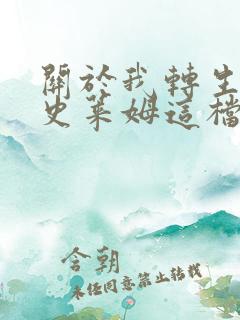 關於我轉生
史萊姆這檔
含朝
未任同意禁止轉載